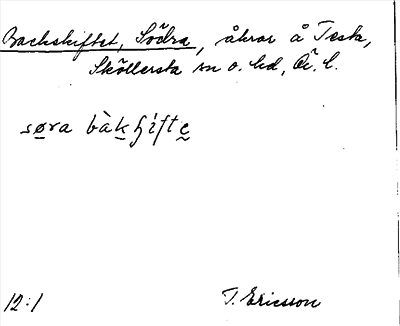 Backskiftet, Södra, åkrar å Testa,
Sköllersta sn o. hd, Ör. l.
søra bàkʃifte
12:1
T. Ericsson